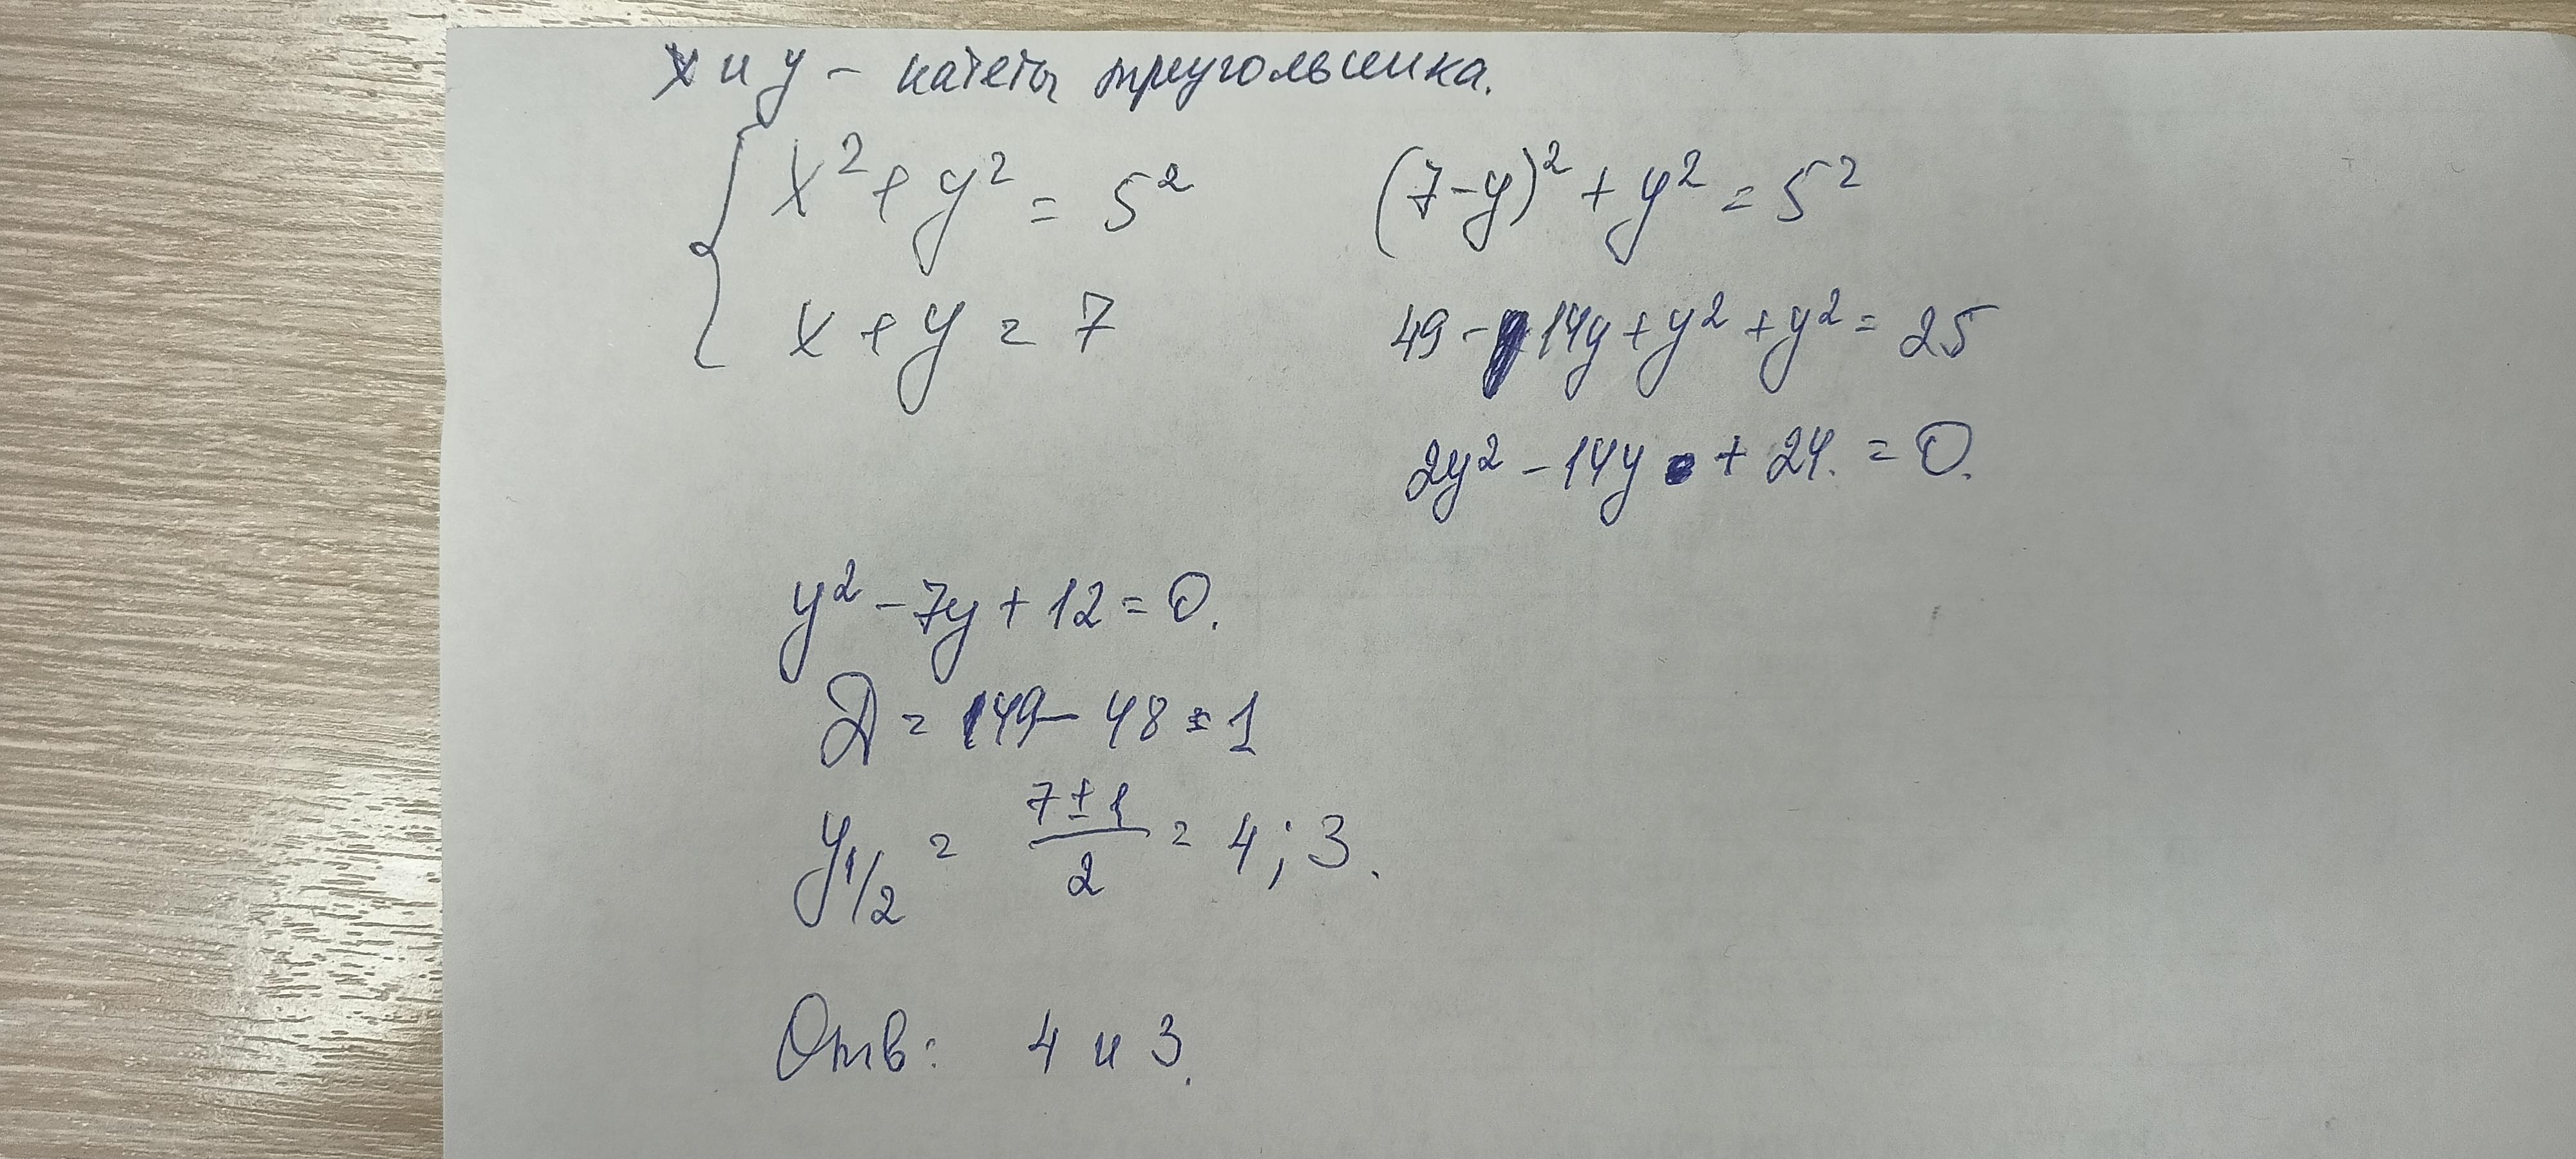 x и y – катеты треугольника.
{ x² + y² = 5²
x + y = 7
(7-y)² + y² = 5²
49 - 14y + y² + y² = 25
2y² - 14y + 24. = 0.
y² - 7y + 12 = 0.
Д = 49 - 48 = 1
y1/2 = (7 ± 1)/2 = 4; 3.
Отв: 4 и 3.